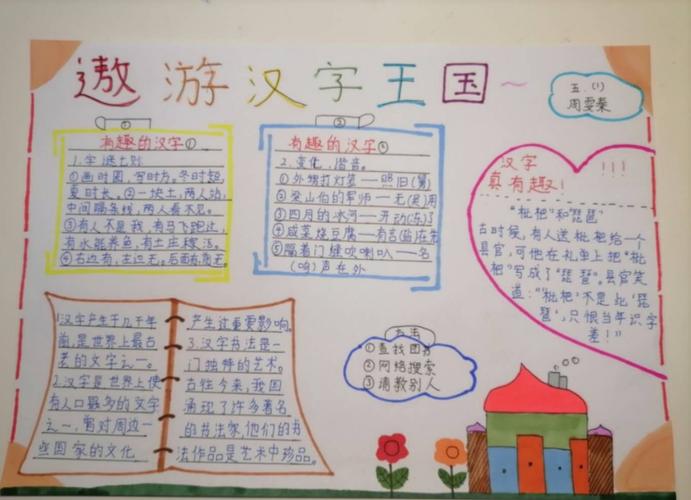 遨游汉字王国~
五.(1)
周雯
①
有趣的汉字①
1.字谜七则
①画时圆,写时方,冬时短,
夏时长。②一块土,两人站,
中间隔条线,两人看不见。
③有人不是我,有马飞跑过,
有水能养鱼,有土庄稼活。
④右边有,左边无。后面有
②
有趣的汉字②
2.变化、谐音。
①外甥打灯笼——照旧(舅)
②梁山伯的军师——无(吴)用
③四月的冰河——开动(冻)了
④咸菜烧豆腐——有言(盐)在先
⑤隔着门缝吹喇叭——名
(鸣)声在外
汉字
真有趣!
!!!
“枇杷”和“琵琶”
古时候,有人送枇杷给一个
县官,可他在礼单上把“枇
杷”写成了“琵琶”。县官笑
道:“‘枇杷’不是此‘琵
琶’,只恨当年识字
差!”
1.汉字产生于几千年
前,是世界上最古
老的文字之一。
2.汉字是世界上使
有人口最多的文字
之一,曾对周边一
些国家的文化
产生过重要影响。
3.汉字书法是一
门独特的艺术。
古往今来,我国
涌现了许多著名
的书法家,他们的书
法作品是艺术中珍品。
办法
①查找图书
②网络搜索
③请教别人